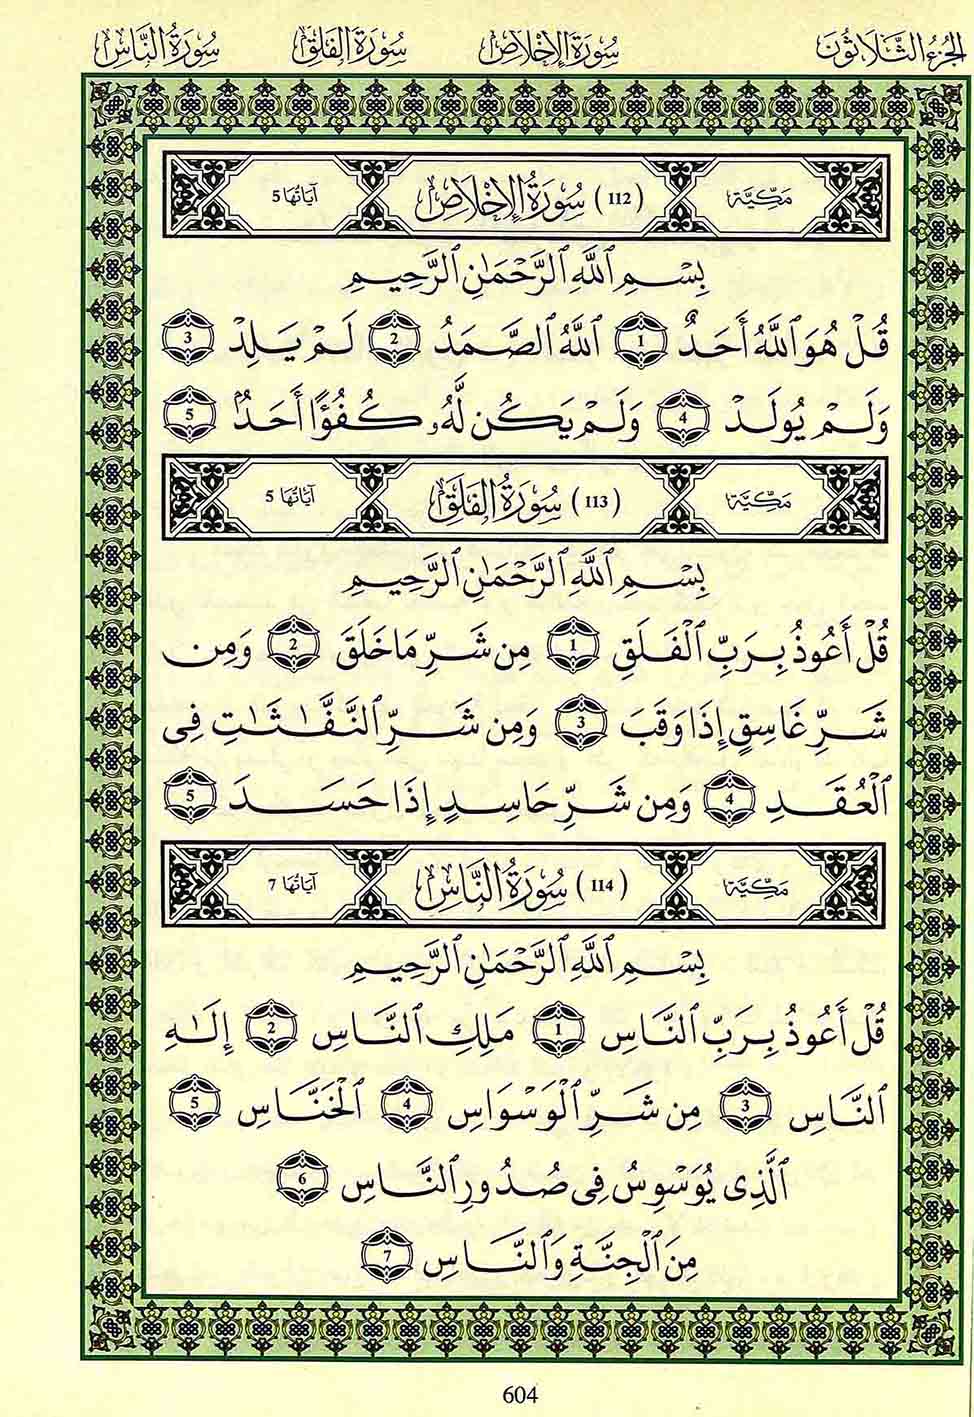 الجُزءُ الثَّلَاثُونَ سُورَةُ الإِخْلَاصِ سُورَةُ الفَلَقِ سُورَةُ النَّاسِ
مَكِّيَّة (112) سُورَةُ الإِخْلَاصِ آيَاتُهَا 5
بِسْمِ ٱللَّهِ ٱلرَّحْمَٰنِ ٱلرَّحِيمِ
قُلْ هُوَ ٱللَّهُ أَحَدٌ 1 ٱللَّهُ ٱلصَّمَدُ 2 لَمْ يَلِدْ 3
وَلَمْ يُولَدْ 4 وَلَمْ يَكُن لَّهُۥ كُفُؤًا أَحَدٌۢ 5
مَكِّيَّة (113) سُورَةُ الفَلَقِ آيَاتُهَا 5
بِسْمِ ٱللَّهِ ٱلرَّحْمَٰنِ ٱلرَّحِيمِ
قُلْ أَعُوذُ بِرَبِّ ٱلْفَلَقِ 1 مِن شَرِّ مَا خَلَقَ 2 وَمِن
شَرِّ غَاسِقٍ إِذَا وَقَبَ 3 وَمِن شَرِّ ٱلنَّفَّٰثَٰتِ فِى
ٱلْعُقَدِ 4 وَمِن شَرِّ حَاسِدٍ إِذَا حَسَدَ 5
مَكِّيَّة (114) سُورَةُ النَّاسِ آيَاتُهَا 7
بِسْمِ ٱللَّهِ ٱلرَّحْمَٰنِ ٱلرَّحِيمِ
قُلْ أَعُوذُ بِرَبِّ ٱلنَّاسِ 1 مَلِكِ ٱلنَّاسِ 2 إِلَٰهِ
ٱلنَّاسِ 3 مِن شَرِّ ٱلْوَسْوَاسِ 4 ٱلْخَنَّاسِ 5
ٱلَّذِى يُوَسْوِسُ فِى صُدُورِ ٱلنَّاسِ 6
مِنَ ٱلْجِنَّةِ وَٱلنَّاسِ 7
604